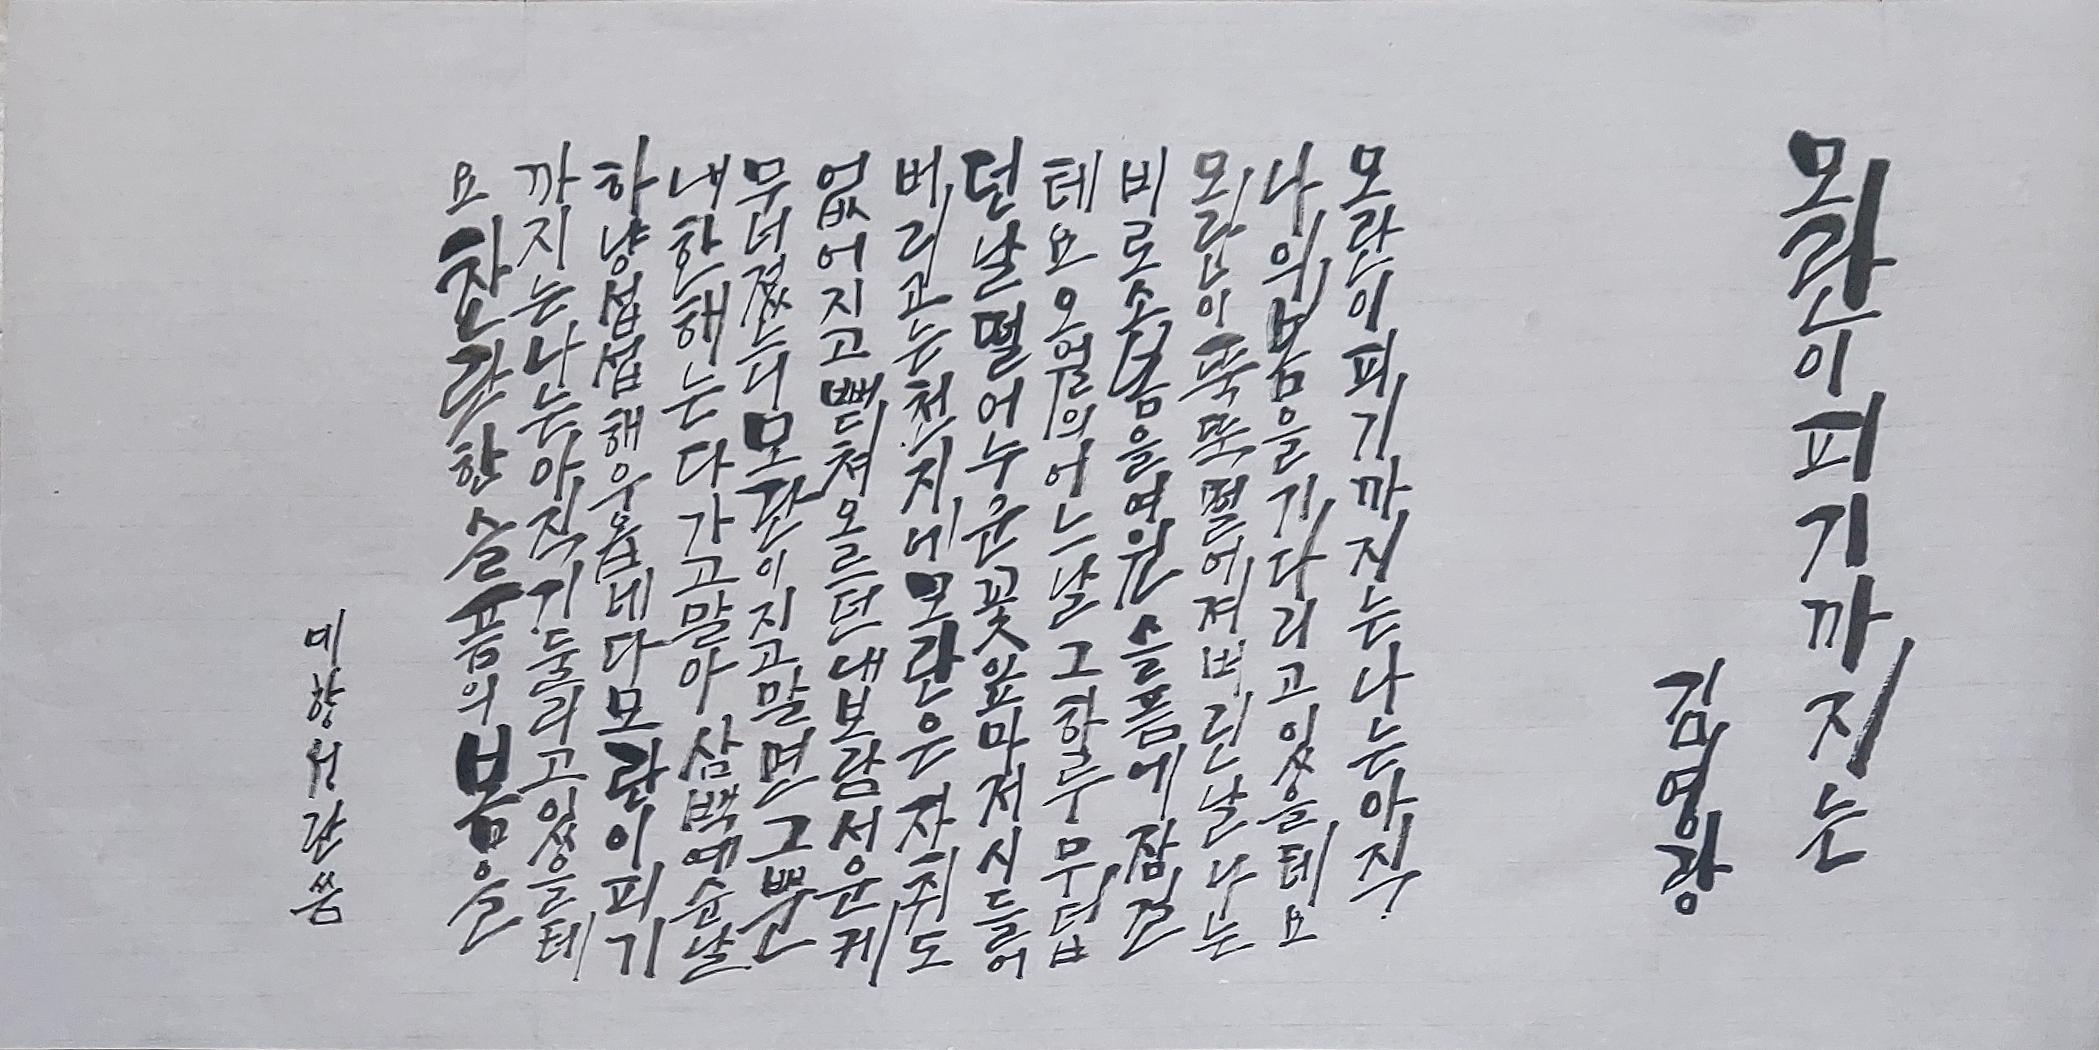 모란이피기까지는
김영랑
모란이피기까지는나는아직
나의봄을기다리고있을테요
모란이뚝뚝떨어져버린날나는
비로소봄을여윈슬픔에잠길
테요오월의어느날그하루무덥
던날떨어누운꽃잎마저시들어
버리고는천지에모란은자취도
없어지고뻗쳐오르던내보람서운케
무너졌느니모란이지고말면그뿐
내한해는다가고말아삼백예순날
하냥섭섭해우옵네다모란이피기
까지는나는아직기둘리고있을테
요찬란한슬픔의봄을
미향서란씀